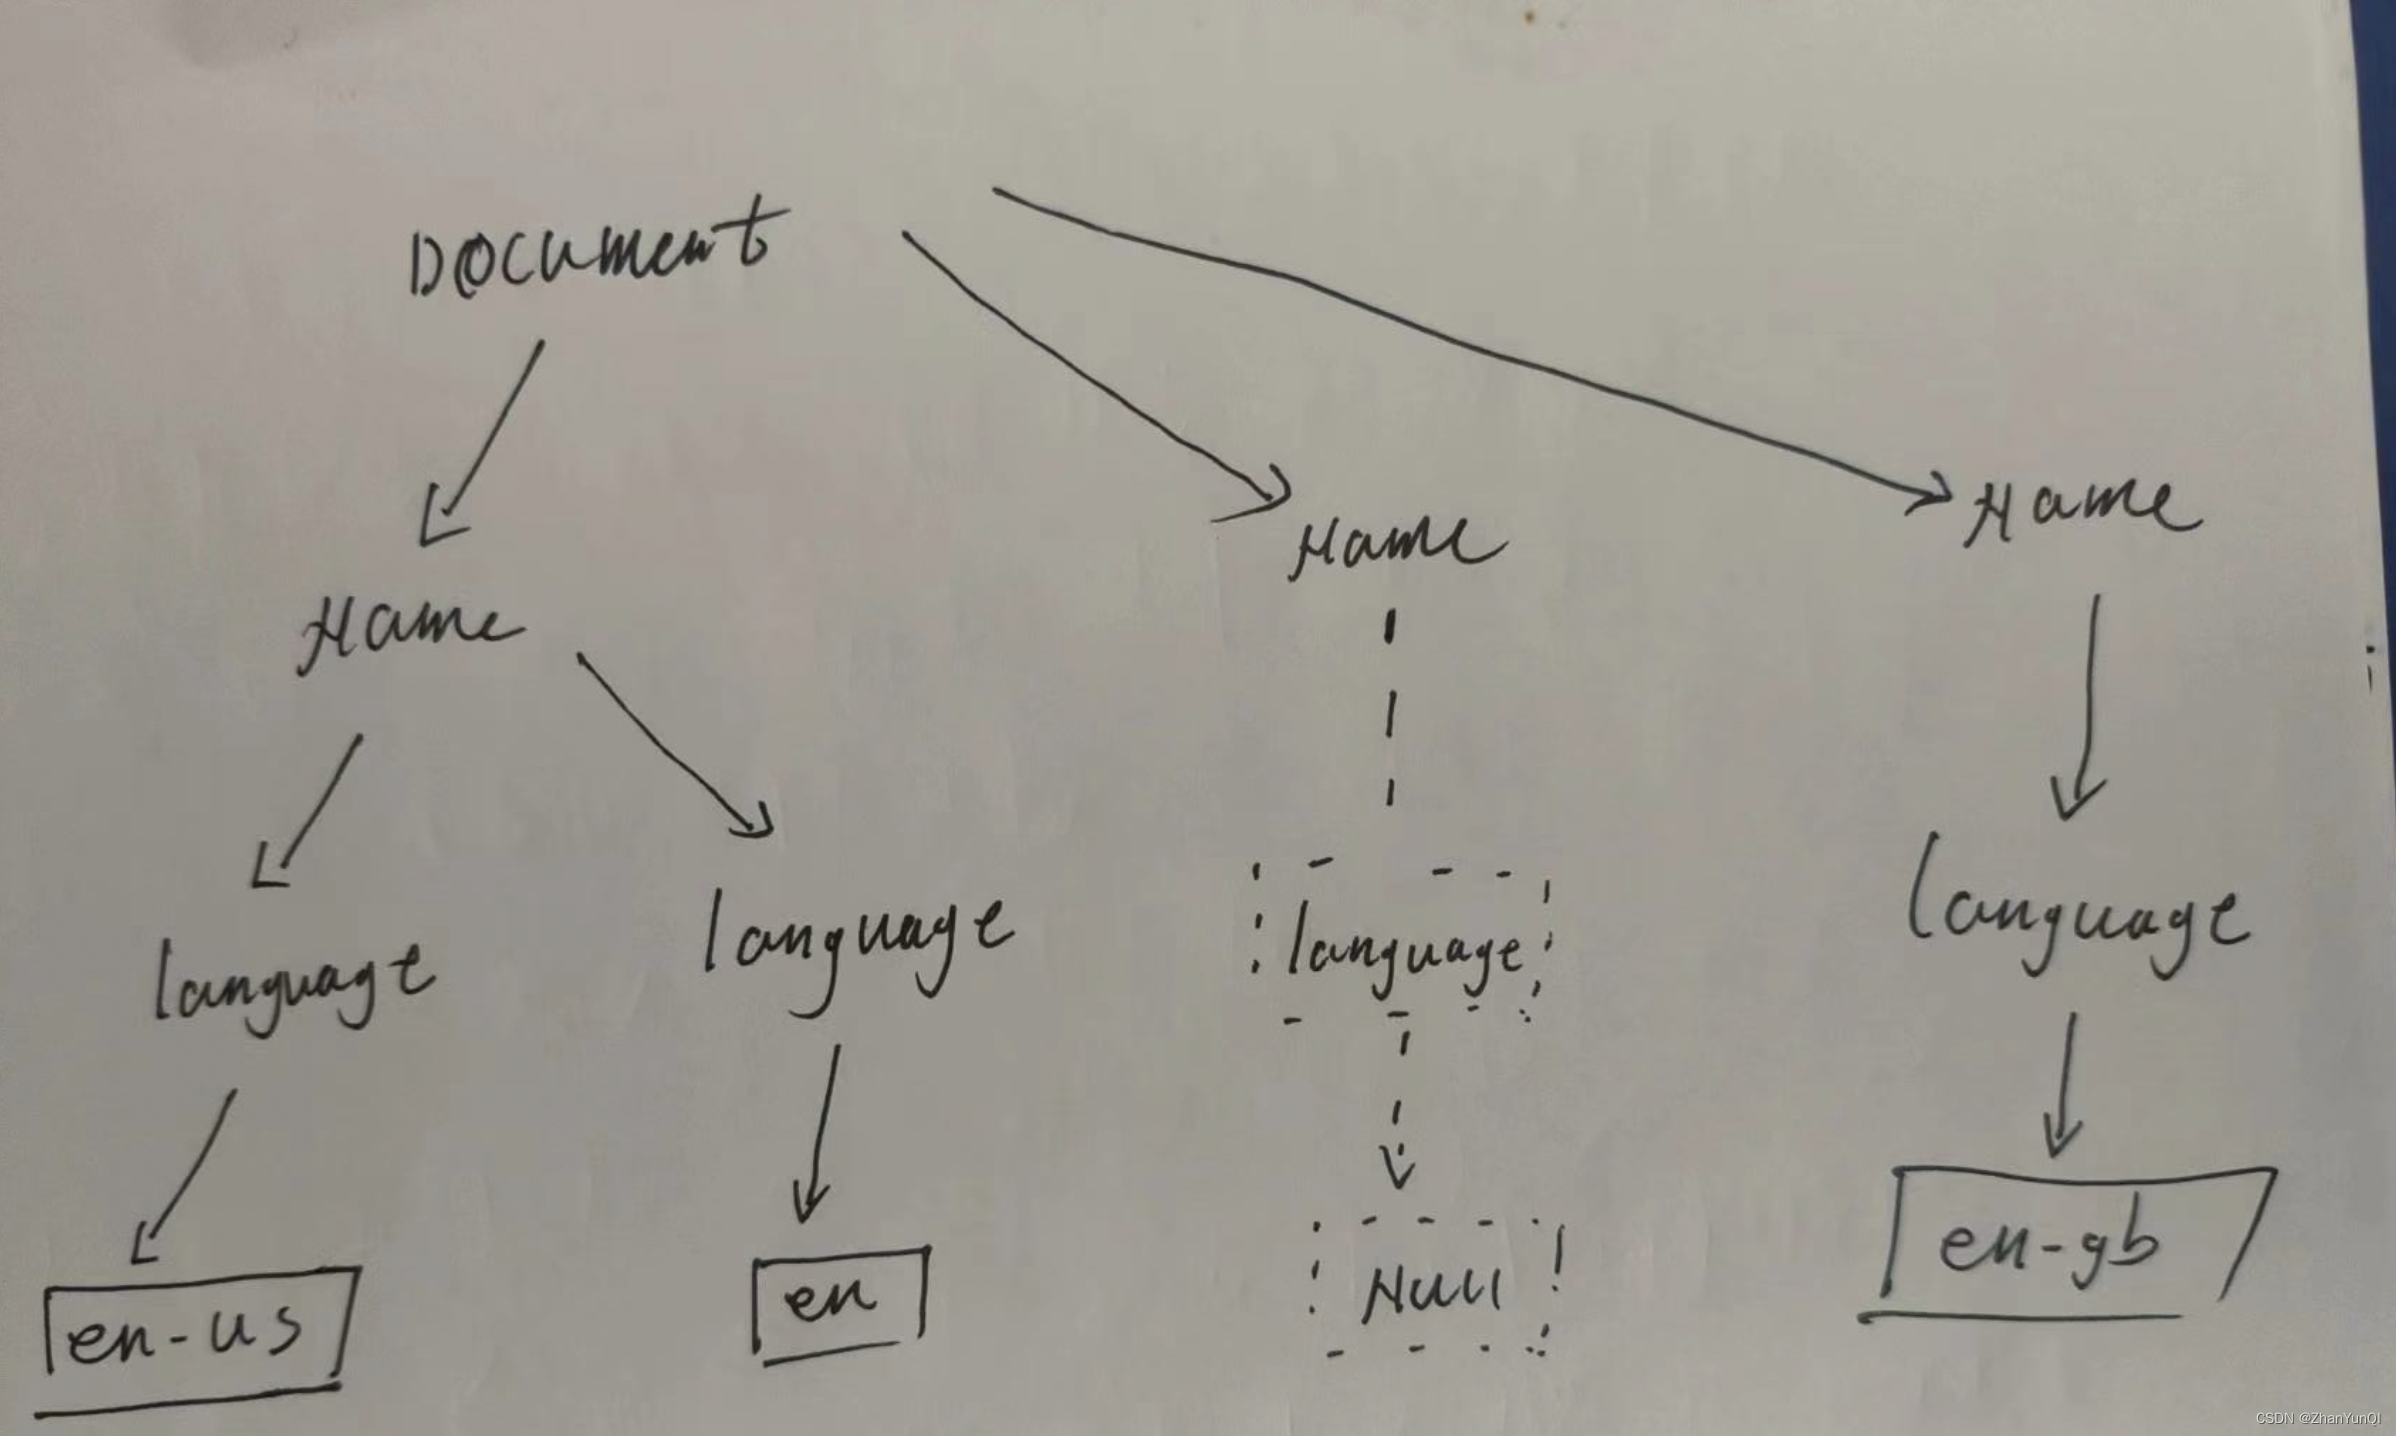 Document
Name
Name
Name
language
language
language
language
en-us
en
Null
en-gb
CSDN @ZhanYunQI